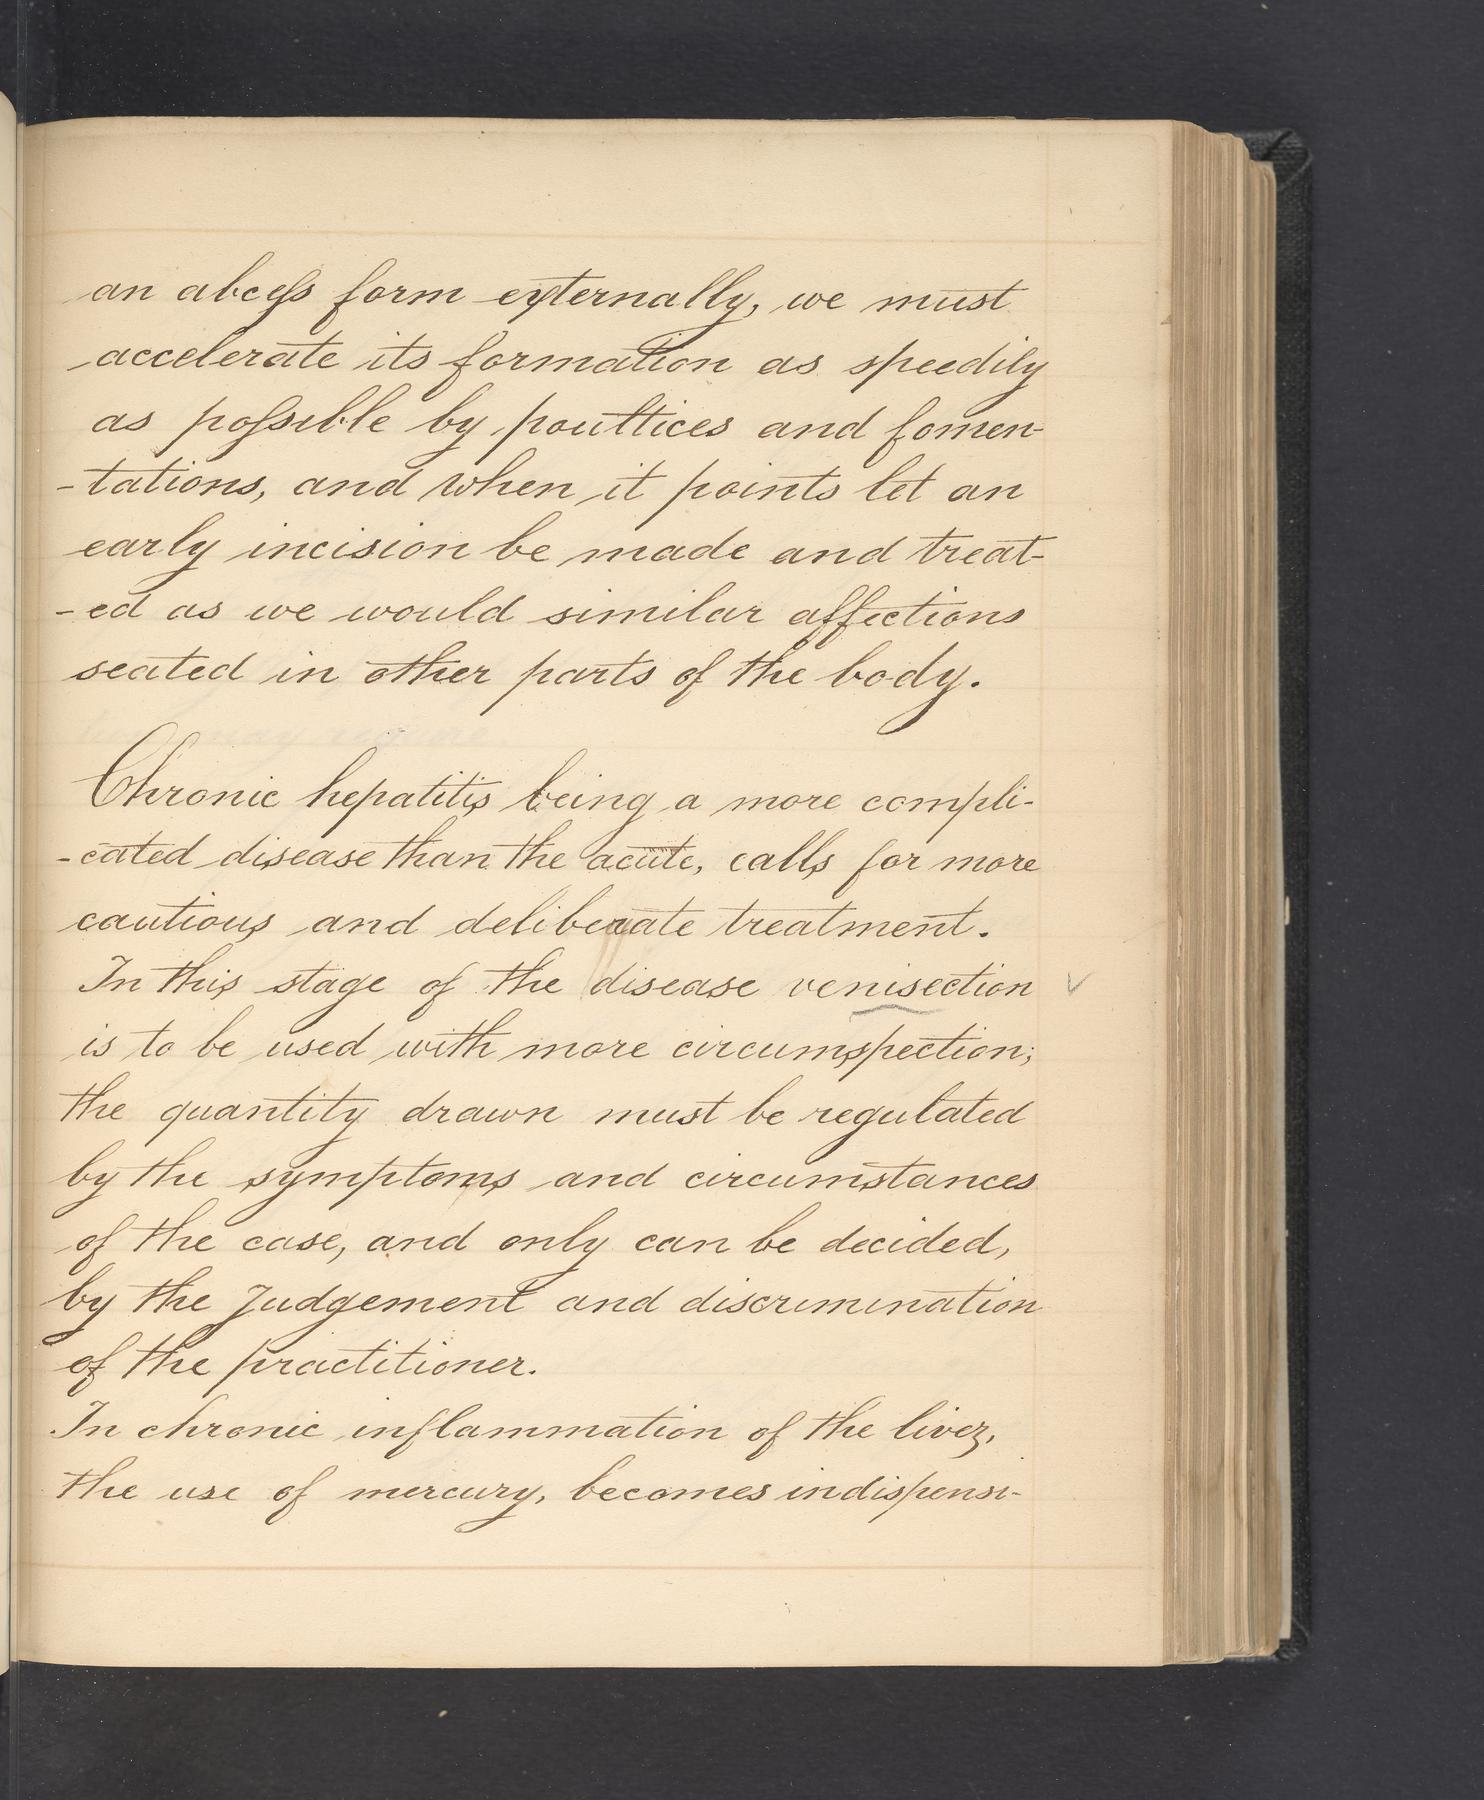 an abcess form externally, we must
accelerate its formation as speedily
as possible by poultices and fomen-
-tations, and when it points let an
early incision be made and treat-
-ed as we would similar affections
seated in other parts of the body.
Chronic hepatitis being a more compli-
-cated disease than the acute, calls for more
cautious and deliberate treatment.
In this stage of the disease venisection
is to be used with more circumspection;
the quantity drawn must be regulated
by the symptoms and circumstances
of the case, and only can be decided,
by the Judgement and discrimination
of the practitioner.
In chronic inflammation of the liver,
the use of mercury, becomes indispensi-